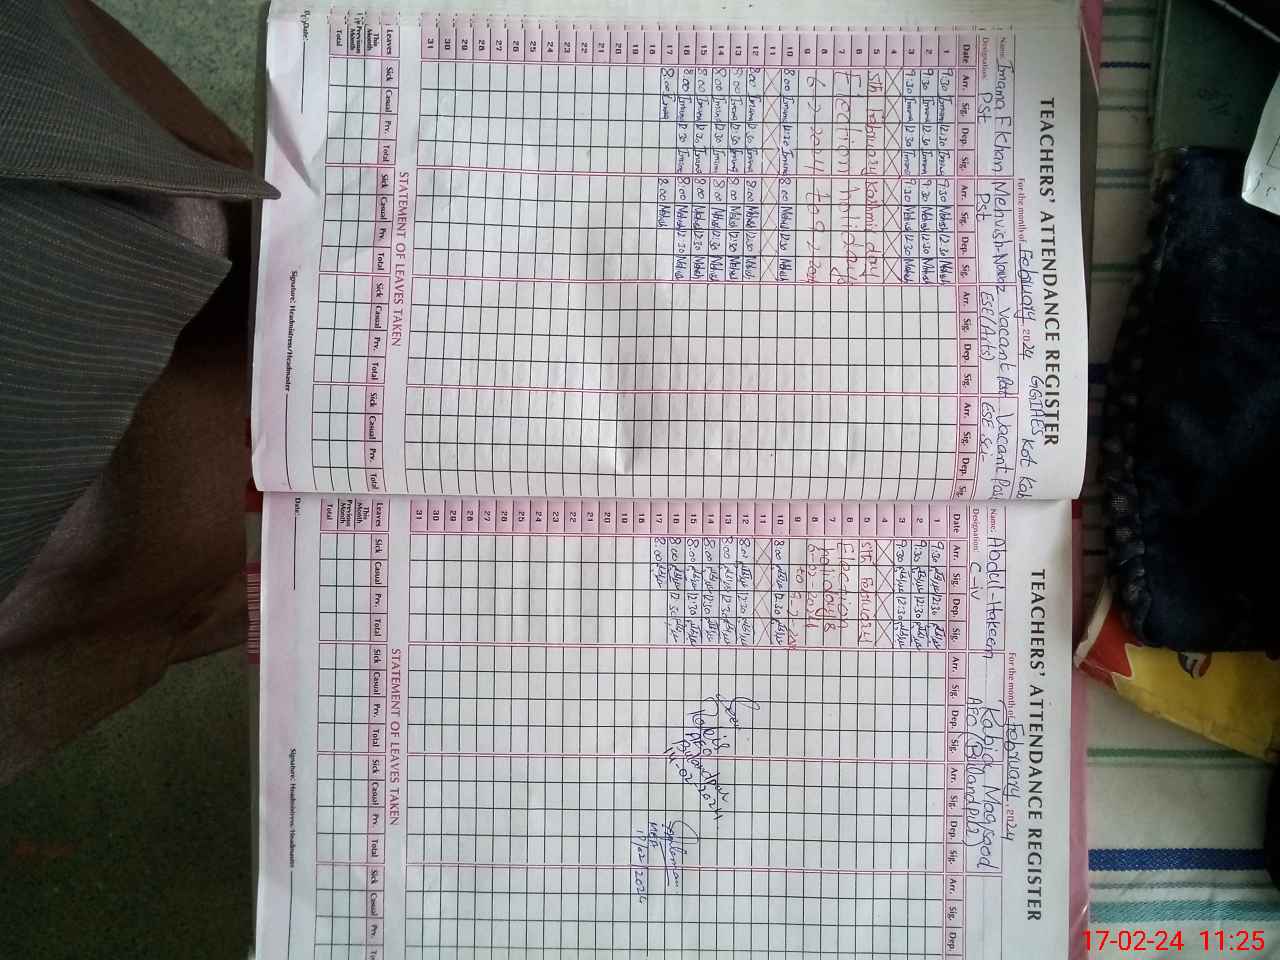 TEACHERS' ATTENDANCE REGISTER
For the month of February 2024 GGTAES Kot Kab
Name: Imama F Khan Mehvish Nawaz Vacant Post Vacant Pos
Designation: Pst Pst ESE (Arts) ESE Sci-
Date Arr. Sig. Dep. Sig. Arr. Sig. Dep. Sig. Arr. Sig. Dep. Sig. Arr. Sig. Dep. Sig.
1 9:30 Imama 12:30 Imama 9:30 Mehvish 12:30 Mehvish
2 9:30 Imama 12:30 Imama 9:30 Mehvish 12:30 Mehvish
3 9:30 Imama 12:30 Imama 9:30 Mehvish 12:30 Mehvish
4
5 5th February Kashmir day
6
7 Election holidays
8
9 6-2-2024 to 9-2-2024
10 8:00 Imama 12:30 Imama 8:00 Mehvish 12:30 Mehvish
11
12 8:00 Imama 12:30 Imama 8:00 Mehvish 12:30 Mehvish
13 8:00 Imama 12:30 Imama 8:00 Mehvish 12:30 Mehvish
14 8:00 Imama 12:30 Imama 8:00 Mehvish 12:30 Mehvish
15 8:00 Imama 12:30 Imama 8:00 Mehvish 12:30 Mehvish
16 8:00 Imama 12:30 Imama 8:00 Mehvish 12:30 Mehvish
17 8:00 Imama 8:00 Mehvish
18
19
20
21
22
23
24
25
26
27
28
29
30
31
STATEMENT OF LEAVES TAKEN
Leaves Sick Casual Prv. Total Sick Casual Prv. Total Sick Casual Prv. Total Sick Casual Prv. Total
This Month
Previous Month
Total
Date: Signature: Headmistress/Headmaster
TEACHERS' ATTENDANCE REGISTER
For the month of February 2024
Name: Abdul-Hakeem Rabida Maqsood
Designation: C-iv AEO (Bullandpur)
Date Arr. Sig. Dep. Sig. Arr. Sig. Dep. Sig. Arr. Sig. Dep. Sig. Arr. Sig. Dep.
1 9:30 12:30
2 9:30 12:30
3 9:30 12:30
4
5 5th February
6 Election
7 holidays
8 6-2-2024
9 to 9-2-
10 8:00 12:30
11
12 8:00 12:30
13 8:00 12:30
14 8:00 12:30
15 8:00 12:30
16 8:00 12:30
17 8:00
18
19
20
21
22
23
24
25
26
27
28
29
30
31
AEO
14-02-2024
MEA
17/02/2024
STATEMENT OF LEAVES TAKEN
Leaves Sick Casual Prv. Total Sick Casual Prv. Total Sick Casual Prv. Total Sick Casual Prv.
This Month
Previous Month
Total
Date: Signature: Headmistress/Headmaster
17-02-24 11:25